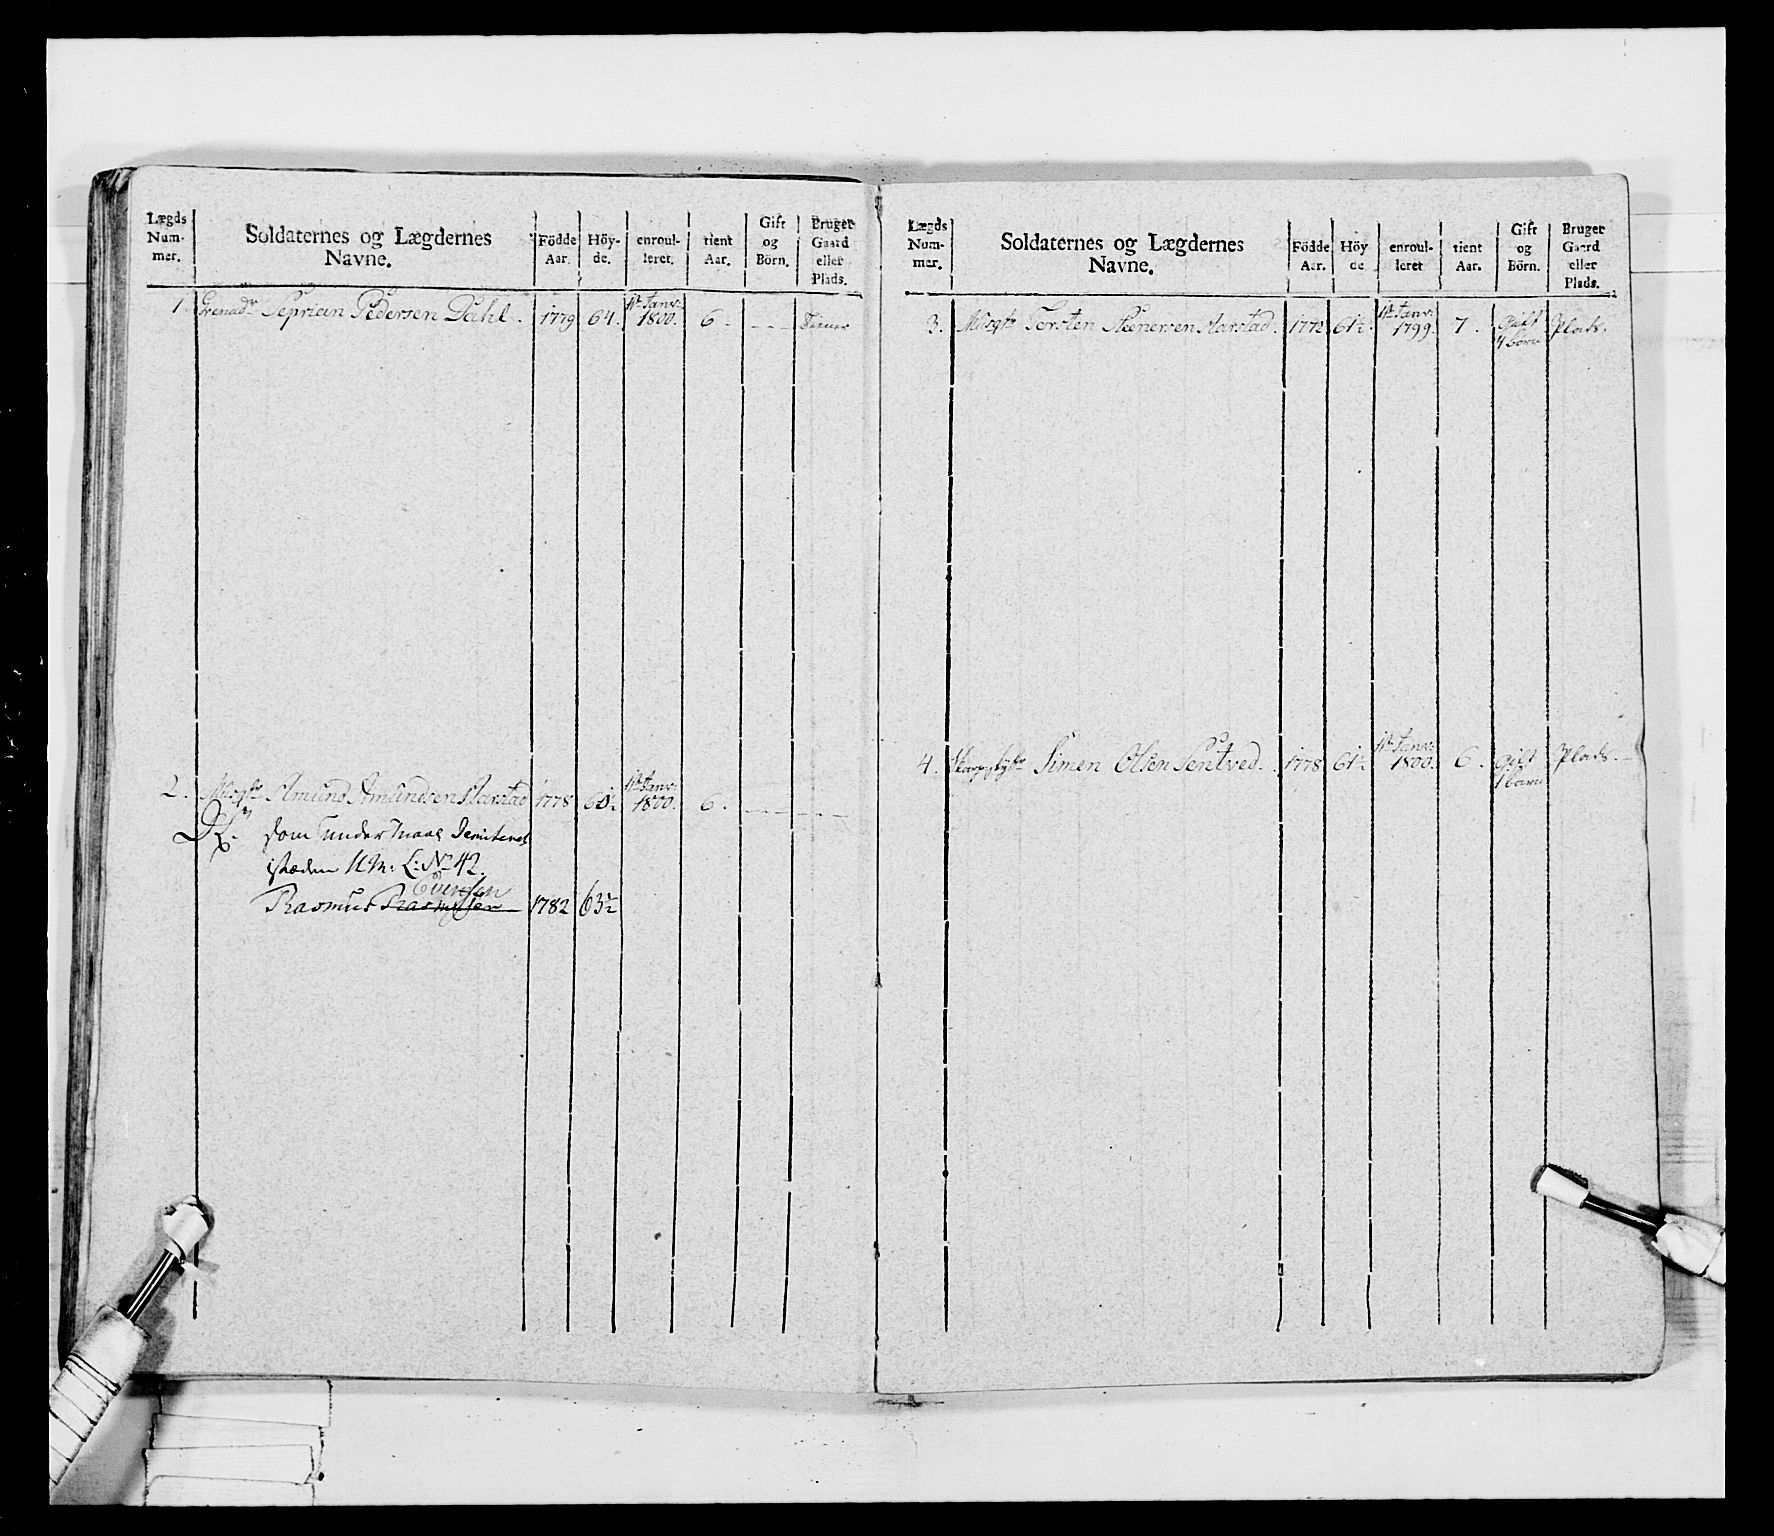 Lægds Num- mer.
Soldaternes og Lægdernes Navne.
Födde Aar.
Höy- de.
enroul- leret.
tient Aar.
Gift og Börn.
Bruger Gaard eller Plads.
1. Grenadr Seprian Pedersen Dahl. 1779 64. 1te Janv: 1800. 6. - - -
2. Musqtr Amund Amundsen Aarstad 1778 1te Janv: 1800. 6.
som under Maal
istæden U. M: L: No 42.
Evensen
Rasmus Rasmussen 1782 63½
Lægds Num- mer.
Soldaternes og Lægdernes Navne.
Födde Aar.
Höy de
enroul- leret
tient Aar.
Gift og Börn.
Bruger Gaard eller Plads.
3. Musqtr Torsten Aarstad. 1772 61½. 1te Janv: 1799. 7. Gift 4 börn Plads.
4. Skarpskyttr Simen Olsen Sentved. 1778 61½. 1te Janv: 1800. 6. Gift 1 barn Plads.